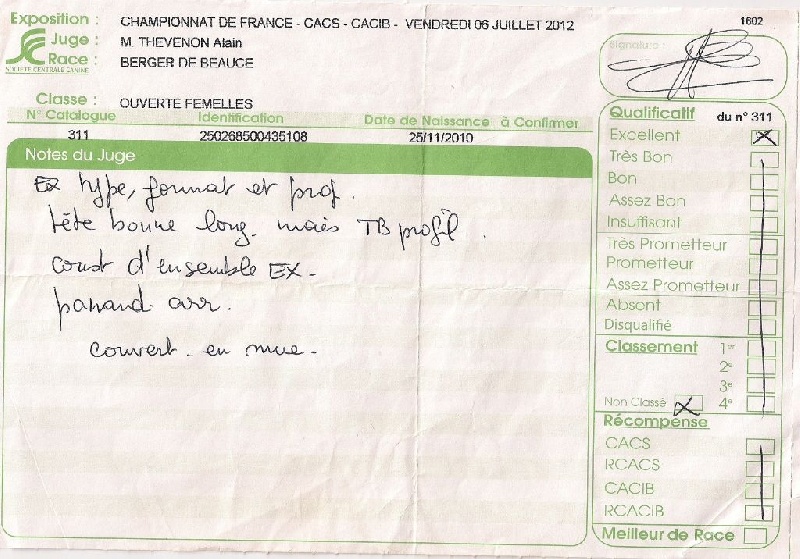 Exposition : CHAMPIONNAT DE FRANCE - CACS - CACIB - VENDREDI 06 JUILLET 2012
1602
Juge : M. THEVENON Alain
Race : BERGER DE BEAUCE
SOCIETE CENTRALE CANINE
Classe : OUVERTE FEMELLES
N° Catalogue Identification Date de Naissance à Confirmer
311 250268500435108 25/11/2010
Notes du Juge
Ex type, format et prof.
tête bonne long. mais TB profil.
const d'ensemble EX-
arr.
couvert. en mue-
Signature :
Qualificatif du n° 311
Excellent
Très Bon
Bon
Assez Bon
Insuffisant
Très Prometteur
Prometteur
Assez Prometteur
Absent
Disqualifié
Classement 1er
2e
3e
Non Classé 4e
Récompense
CACS
RCACS
CACIB
RCACIB
Meilleur de Race